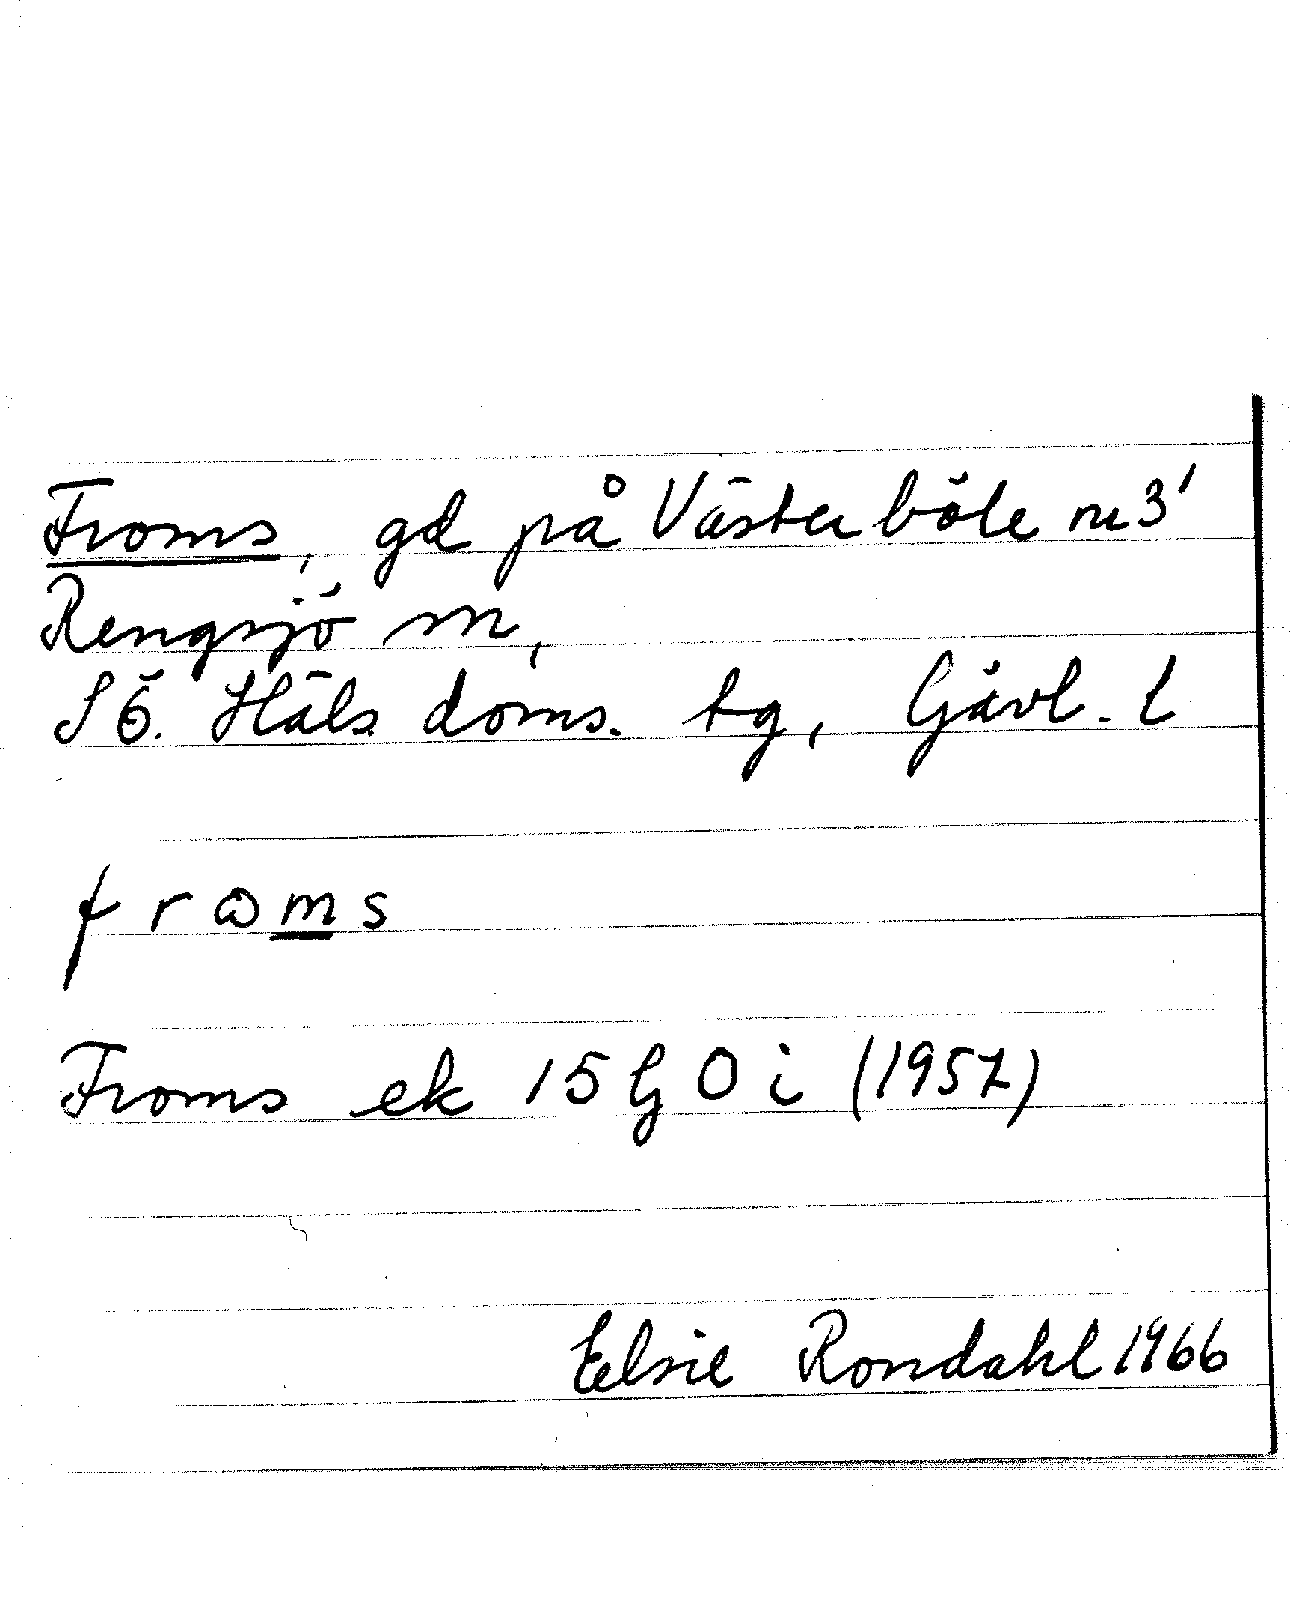 Froms, gd på Västerböle nr 3¹
Rengsjö sn,
SÖ. Häls doms. tg, Gävl. l
froms
Froms ek 15 G 0 i (1957)
Elsie Rondahl 1966